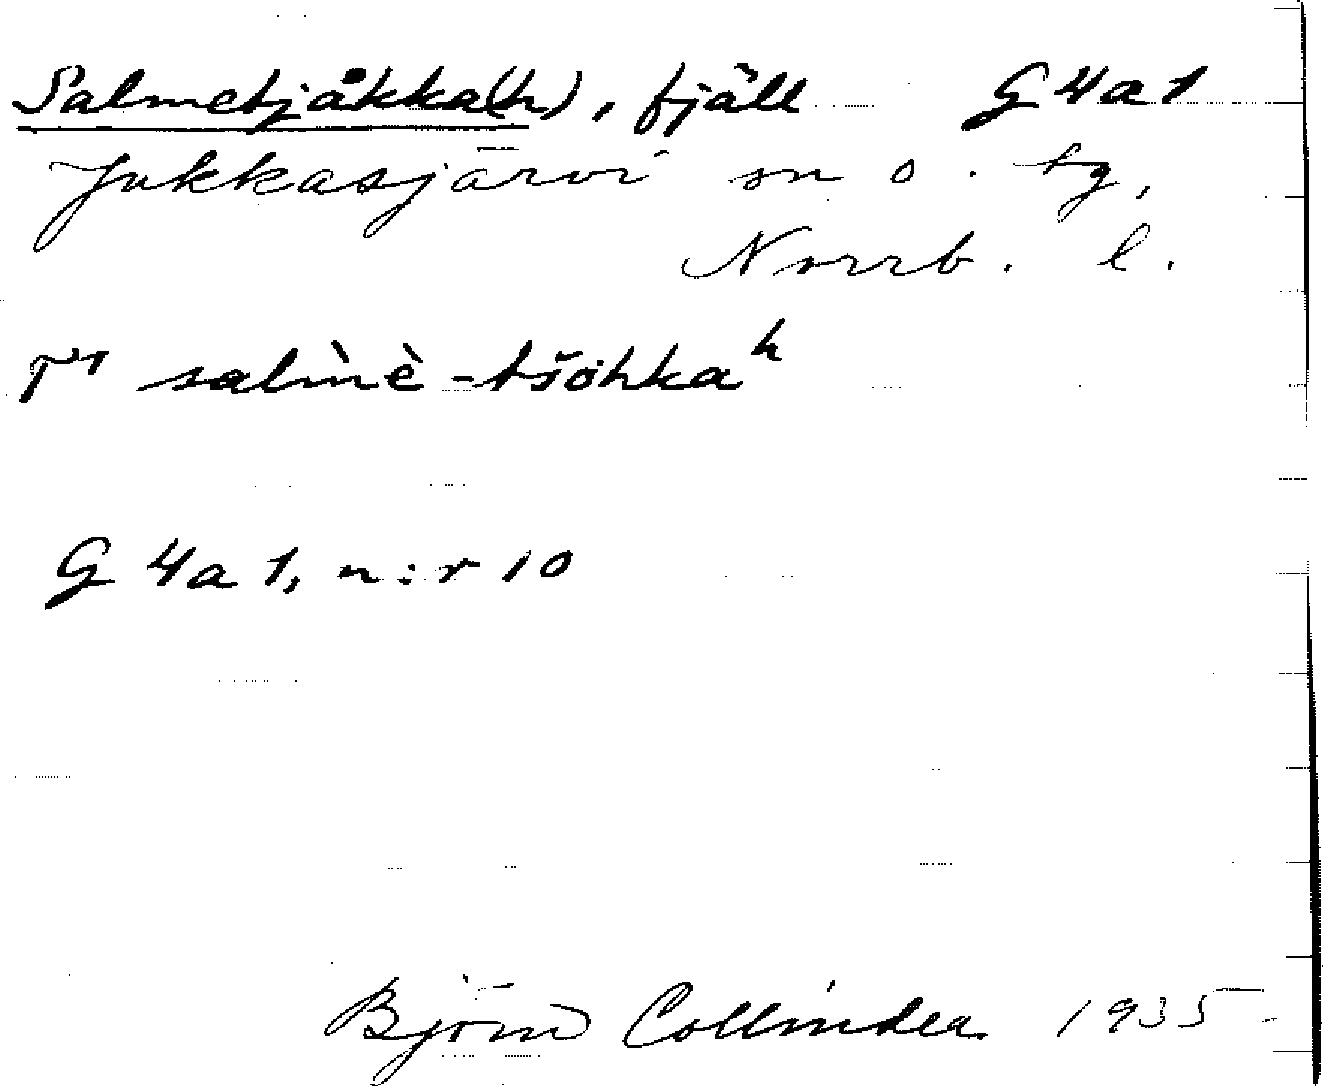 Salmetjåkka(h), fjäll G 4a1
Jukkasjärvi sn o. tg,
Norrb. l.
salm̀è-tšöhkaʰ
G 4a 1, n:r 10
Björn Collinder 1935